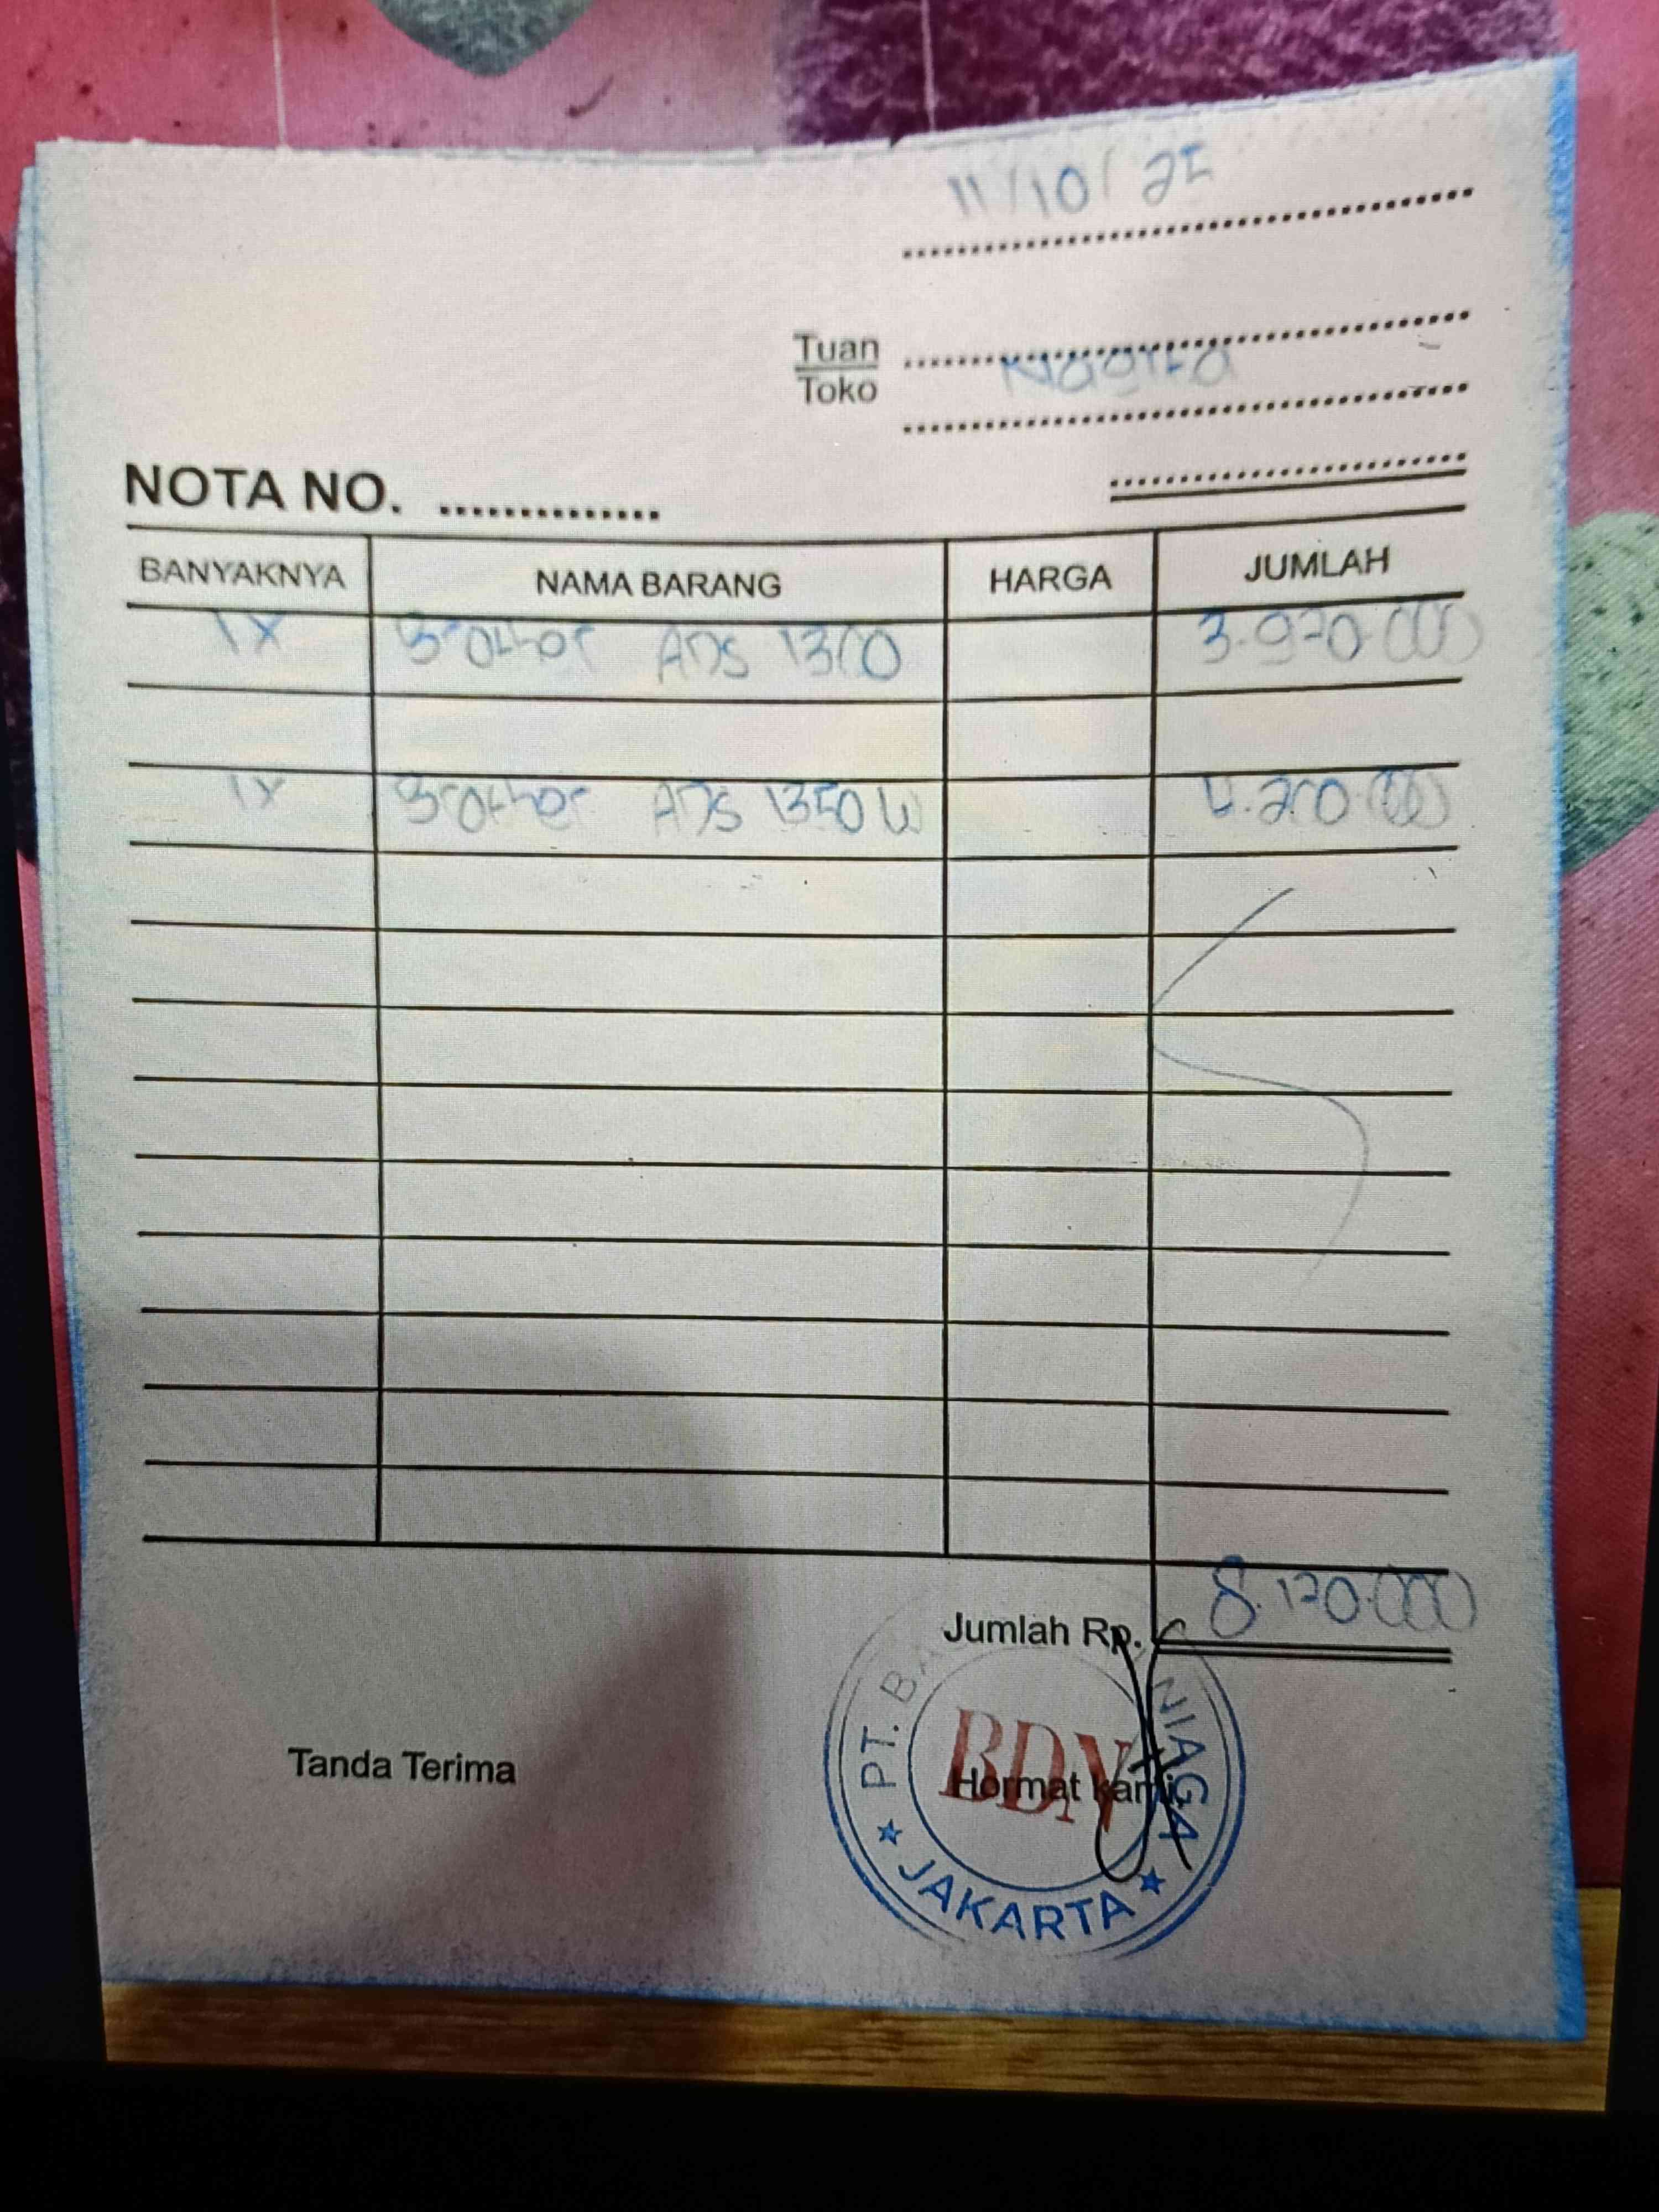 11/10/25
Tuan
Toko
Nagita
NOTA NO. ..............
BANYAKNYA NAMA BARANG HARGA JUMLAH
1x Brother ADS 1300 3.970.000
1x Brother ADS 1350 W 4.200.000
Jumlah Rp. 8.170.000
Tanda Terima
Hormat kami,
PT. B NIAGA
BDN
★ JAKARTA ★